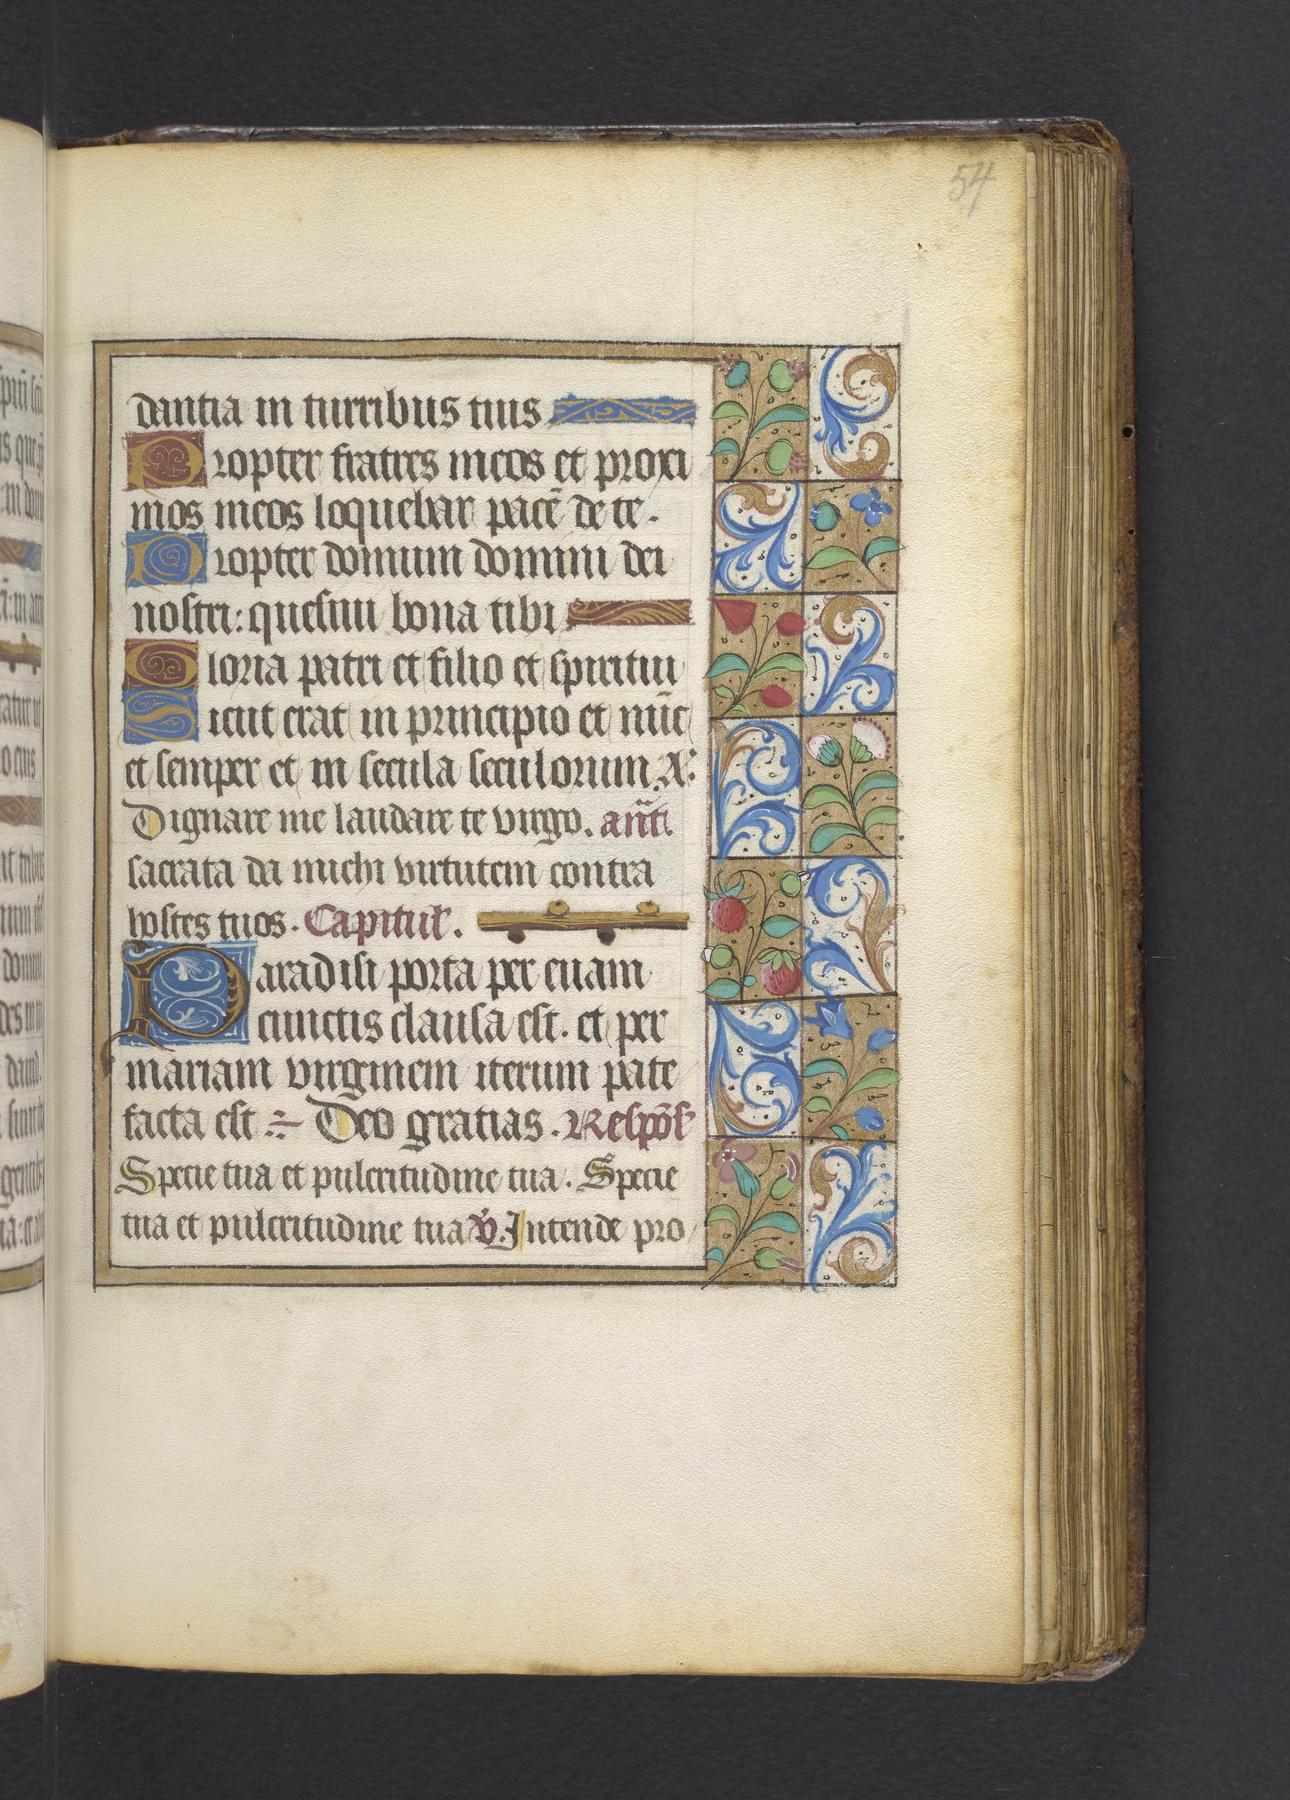 54
dantia in turribus tuis
Propter fratres meos et proxi
mos meos loquebar pacē de te.
Propter domum domini dei
nostri: quesiui bona tibi
Gloria patri et filio et spiritui
Sicut erat in principio et nūc
et semper et in secula seculorum. A:
Dignare me laudare te virgo. anti
sacrata da michi virtutem contra
hostes tuos. Capitul.
Paradisi porta per euam
cunctis clausa est. et per
mariam virginem iterum pate
facta est Deo gratias. Respōs
Specie tua et pulcritudine tua. Specie
tua et pulcritudine tua v. Intende pro